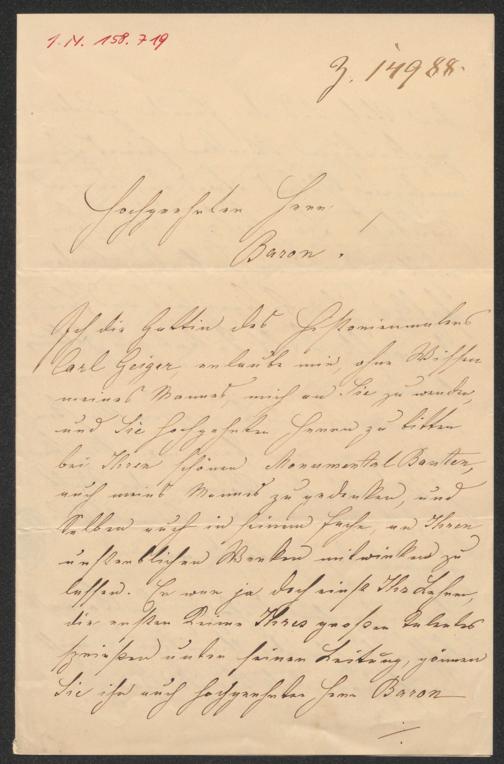 I.N. 158.719
Z. 14988.
Hochgeehrter Herr
Baron!
Ich die Gattin des Historienmalers
Carl Geiger, erlaube mir, ohne Wissen
meines Mannes, mich an Sie zu wenden,
und Sie hochgeehrter Herrn zu bitten
bei Ihren schönen Monumental Bauten,
auch meines Mannes zu gedenken, und
selben auch in seinem Fache, an Ihren
unsterblichen Werken mitwirken zu
lassen. Er war ja doch einst Ihr Lehrer,
die ersten Keime Ihres großen Talentes
sprießten unter seiner Leitung, gönnen
Sie ihm auch hochgeehrter Herr Baron
./.